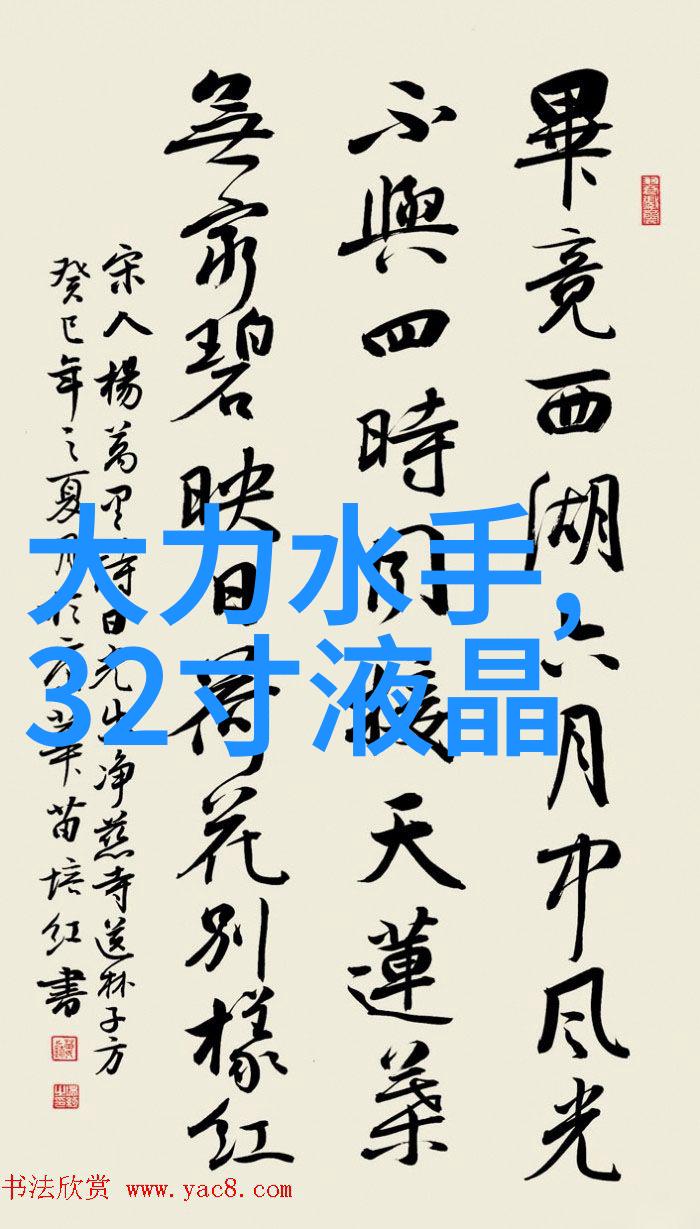 畢竟西湖六月中风光
不與四時同接天蓮葉
無窮碧映日荷花别樣红
宋人楊萬里詩晓出净慈寺送林子方
癸巳年之夏月於京華苗培红書
大力水手,
32寸液晶
书法欣赏 www.yac8.com